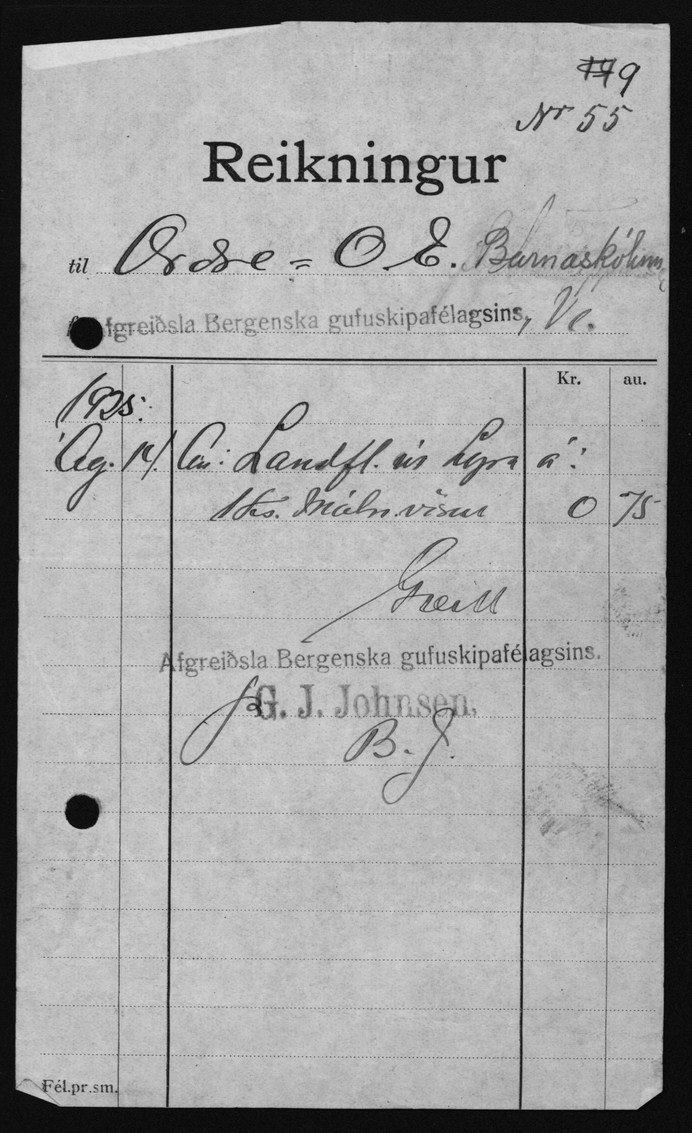 9
Nr 55
Reikningur
til Ordre = O E. Barnaskólinn
Afgreiðsla Bergenska gufuskipafélagsins, Ve.
Kr. au.
1925.
Ág. 14. Landfl. úr Lyra á:
1 ks. 0 75
Greitt
Afgreiðsla Bergenska gufuskipafélagsins.
G. J. Johnsen.
B. J.
Fél.pr.sm.